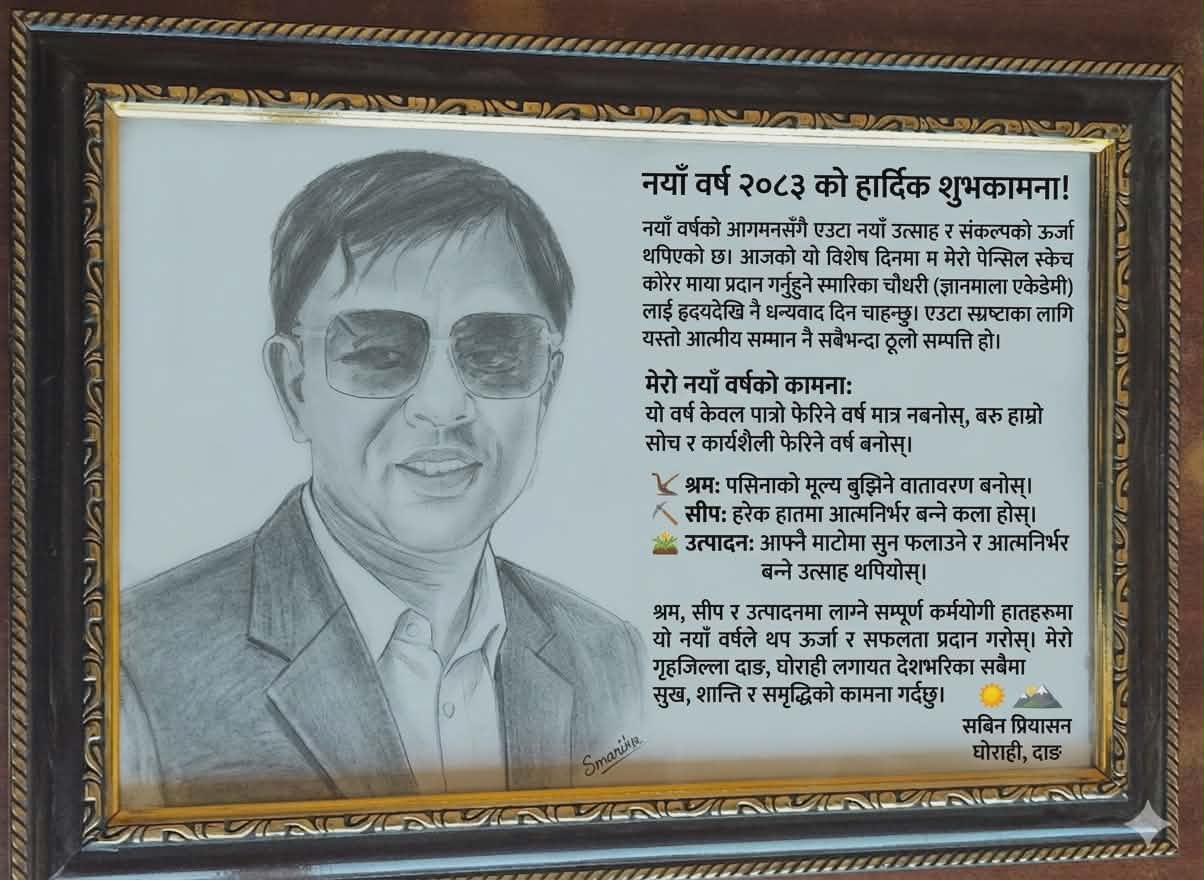 नयाँ वर्ष २०८३ को हार्दिक शुभकामना!
नयाँ वर्षको आगमनसँगै एउटा नयाँ उत्साह र संकल्पको ऊर्जा
थपिएको छ। आजको यो विशेष दिनमा म मेरो पेन्सिल स्केच
कोरेर माया प्रदान गर्नुहुने स्मारिका चौधरी (ज्ञानमाला एकेडेमी)
लाई हृदयदेखि नै धन्यवाद दिन चाहन्छु। एउटा स्रष्टाका लागि
यस्तो आत्मीय सम्मान नै सबैभन्दा ठूलो सम्पत्ति हो।
मेरो नयाँ वर्षको कामना:
यो वर्ष केवल पात्रो फेरिने वर्ष मात्र नबनोस्, बरु हाम्रो
सोच र कार्यशैली फेरिने वर्ष बनोस्।
श्रम: पसिनाको मूल्य बुझिने वातावरण बनोस्।
सीप: हरेक हातमा आत्मनिर्भर बन्ने कला होस्।
उत्पादन: आफ्नै माटोमा सुन फलाउने र आत्मनिर्भर
बन्ने उत्साह थपियोस्।
श्रम, सीप र उत्पादनमा लाग्ने सम्पूर्ण कर्मयोगी हातहरूमा
यो नयाँ वर्षले थप ऊर्जा र सफलता प्रदान गरोस्। मेरो
गृहजिल्ला दाङ, घोराही लगायत देशभरिका सबैमा
सुख, शान्ति र समृद्धिको कामना गर्दछु।
सबिन प्रियासन
घोराही, दाङ
Smarika